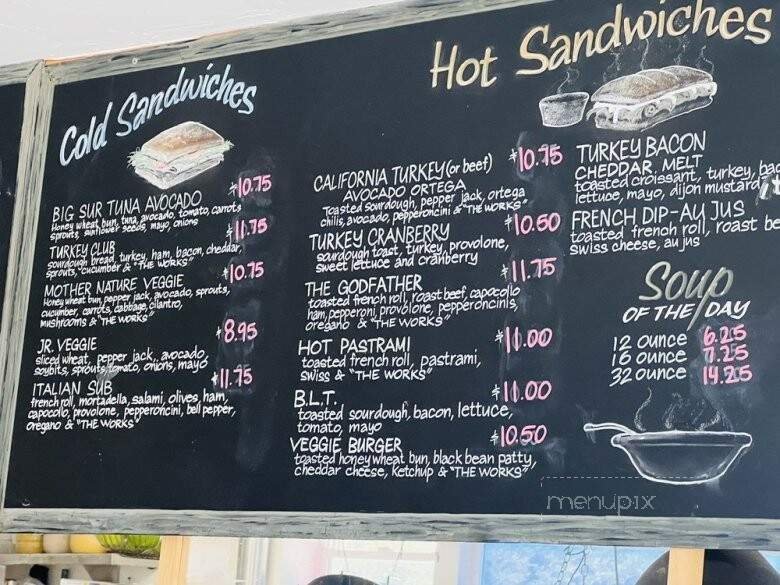 Cold Sandwiches
BIG SUR TUNA AVOCADO $10.75
Honey wheat bun, tuna, avocado, tomato, carrots
sprouts, sunflower seeds, mayo, onions
TURKEY CLUB $11.75
sourdough bread, turkey, ham, bacon, cheddar,
sprouts, cucumber & "THE WORKS"
MOTHER NATURE VEGGIE $10.75
Honey wheat bun, pepper jack, avocado, sprouts,
cucumber, carrots, cabbage, cilantro,
mushrooms & "THE WORKS"
JR. VEGGIE $8.95
sliced wheat, pepper jack, avocado,
soybits, sprouts, tomato, onions, mayo
ITALIAN SUB $11.75
french roll, mortadella, salami, olives, ham,
capocollo, provolone, pepperoncini, bell pepper,
oregano & "THE WORKS"
Hot Sandwiches
CALIFORNIA TURKEY (or beef) $10.75
AVOCADO ORTEGA
Toasted sourdough, pepper jack, ortega
chilis, avocado, pepperoncini & "THE WORKS"
TURKEY CRANBERRY $10.50
sourdough toast, turkey, provolone,
sweet lettuce and cranberry
THE GODFATHER $11.75
toasted french roll, roast beef, capocollo
ham, pepperoni, provolone, pepperoncinis,
oregano & "THE WORKS"
HOT PASTRAMI $11.00
toasted french roll, pastrami,
swiss & "THE WORKS"
B.L.T. $11.00
toasted sourdough, bacon, lettuce,
tomato, mayo
VEGGIE BURGER $10.50
toasted honey wheat bun, black bean patty,
cheddar cheese, ketchup & "THE WORKS"
TURKEY BACON
CHEDDAR MELT
toasted croissant, turkey, bac
lettuce, mayo, dijon mustard
FRENCH DIP-AU JUS
toasted french roll, roast be
swiss cheese, au jus
Soup
OF THE DAY
12 ounce 6.25
16 ounce 7.25
32 ounce 14.25
menupix